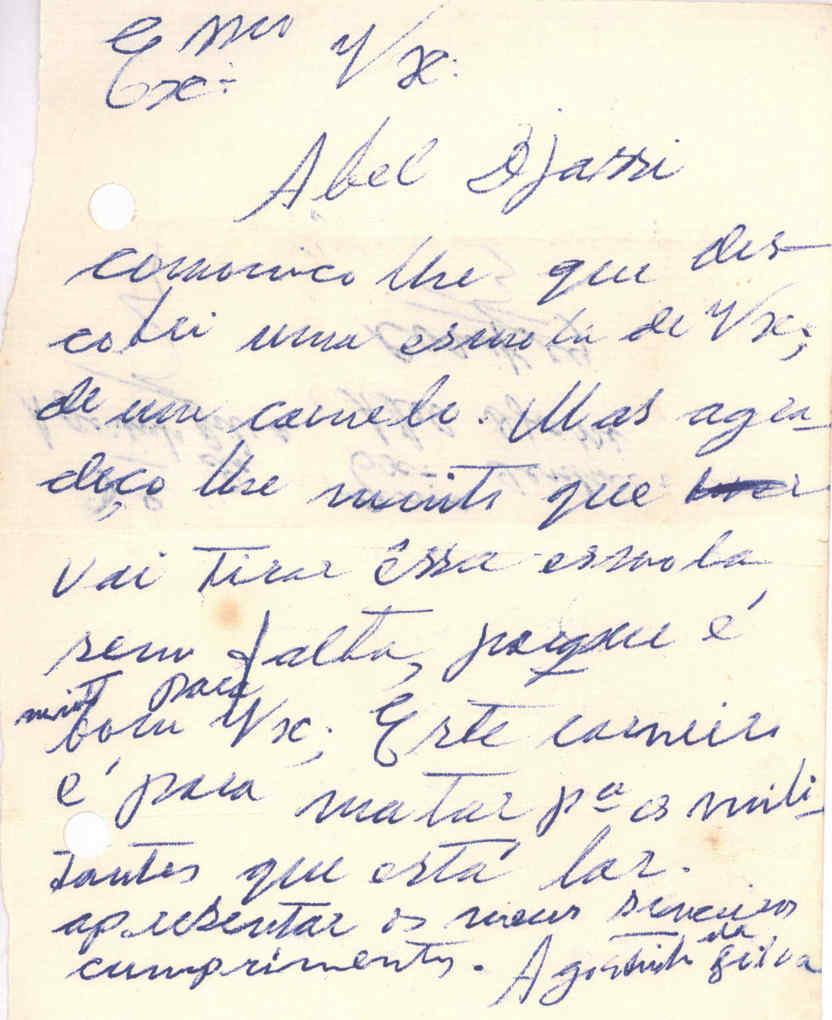 Exmo Vx:
Ex:
Abel Djassi
comonico lhe que des-
cobri uma esmola de Vx;
de um carnelo. Mas agra-
deço lhe muito que
vai tirar éssa esmola
sem falta, porque é
muito para
bom Vx; Este carneiro
é para matar pª os mili-
tantes que está lar.
apresentar os meus sinceiros
cumprimentos. Agostinho da Silva